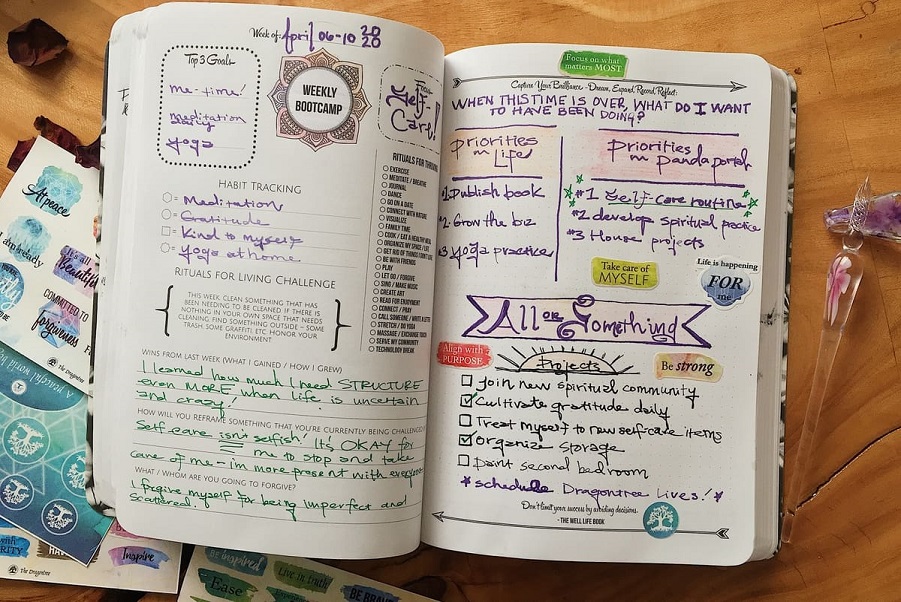 Week of: April 06-10 2020
Top 3 Goals
me-time!
meditation
Yoga
WEEKLY
BOOTCAMP
Focus:
Self-
Care!
HABIT TRACKING
= Meditation
= Gratitude
= Kind to myself
= Yoga at home
RITUALS FOR LIVING CHALLENGE
THIS WEEK, CLEAN SOMETHING THAT HAS
BEEN NEEDING TO BE CLEANED IF THERE IS
NOTHING IN YOUR OWN SPACE THAT NEEDS
CLEANING FIND SOMETHING OUTSIDE – SOME
TRASH, SOME GRAFFITI, ETC HONOR YOUR
ENVIRONMENT
RITUALS FOR
EXERCISE
MEDITATE / BREATHE
JOURNAL
DANCE
GO ON A DATE
CONNECT WITH NATURE
VISUALIZE
FAMILY TIME
COOK / EAT A HEALTHY MEAL
ORGANIZE MY SPACE
GET RID OF THINGS
BE WITH FRIENDS
PLAY
LET GO / FORGIVE
SING / MAKE MUSIC
CREATE ART
READ FOR ENJOYMENT
CONNECT / PRAY
CALL SOMEONE / WRITE A
STRETCH / DO YOGA
MASSAGE / EXCHANGE
SERVE MY COMMUNITY
TECHNOLOGY BREAK
WINS FROM LAST WEEK (WHAT I GAINED / HOW I GREW)
I learned how much I need STRUCTURE
even MORE when life is uncertain
and crazy!
HOW WILL YOU REFRAME SOMETHING THAT YOU'RE CURRENTLY BEING CHALLENGED
Self-care isn't selfish! It's OKAY for
me to stop and take
care of me – im more present with everyone
WHAT / WHOM ARE YOU GOING TO FORGIVE?
I forgive myself for being imperfect and
scattered.
Focus on what
matters MOST
Capture Your Brilliance - Dream, Expand, Record, Reflect:
WHEN THIS TIME IS OVER, WHAT DO I WANT
TO HAVE BEEN DOING?
Priorities
in Life
#1 Publish book
#2 Grow the biz
#3 Yoga practice
Priorities
in Pandaportal
#1 Self-care routine
#2 develop spiritual practice
#3 House projects
Take care of
MYSELF
Life is happening
FOR
me
All or Something
Align with
PURPOSE
Projects
Be strong
Join new spiritual community
Cultivate gratitude daily
Treat myself to new self-care items
Organize storage
Paint second bedroom
* schedule Dragontree Lives! *
Don't limit your success by avoiding decisions.
- THE WELL LIFE BOOK
At peace
I am already
It's all
Beautiful
COMMITTED TO
forgiveness
The Dragontree
A peaceful world
Inspire
The Dragontree
Be inspired
Live in truth
Ease
BE BRAVE